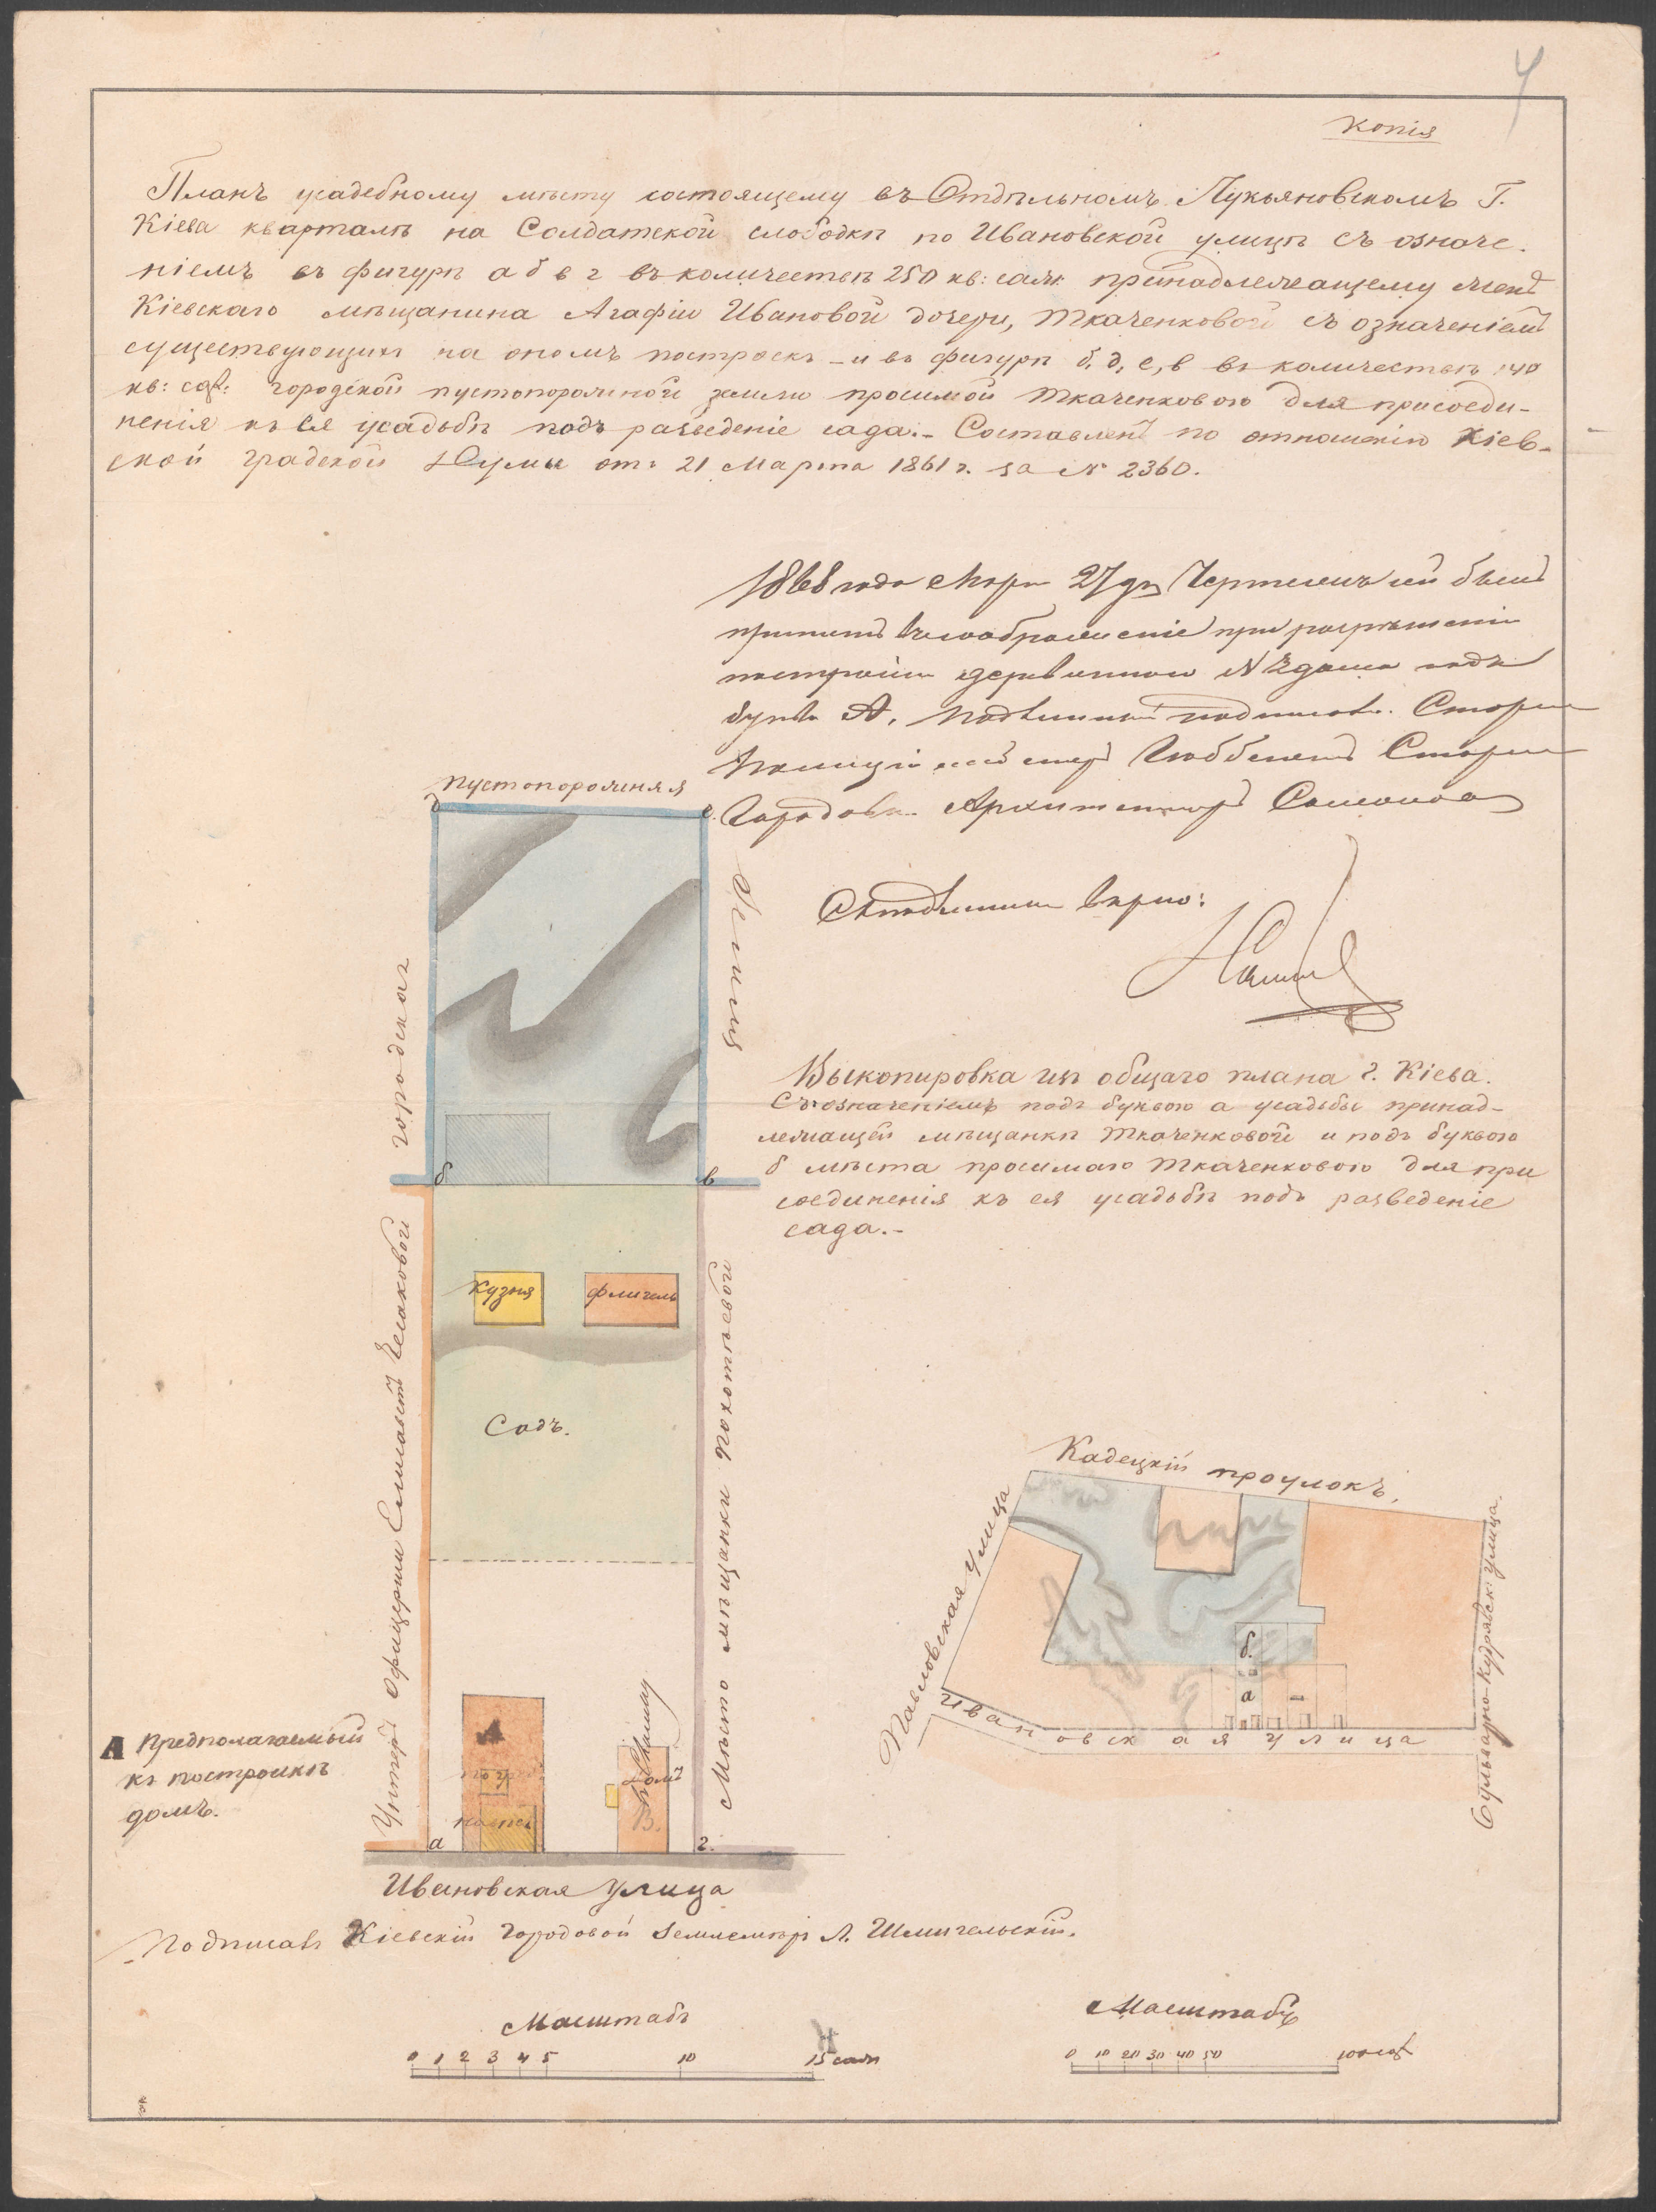 4
Копія
Планъ усадебному мѣсту состоящему въ Отдѣльномъ Лукьяновскомъ Г.
Кіева кварталѣ на Солдатской слободкѣ по Ивановской улицѣ съ означе.
ніемъ въ фигурѣ а б в г въ количествѣ 250 кв: саж: принадлежащему женѣ
Кіевскаго мѣщанина Агафіи Ивановой дочери, Ткаченковой съ означеніемъ
существующихъ на ономъ построекъ - и въ фигурѣ б, д, е, в въ количествѣ 140
кв: саж: городской пустопорожней земли просимой Ткаченковою для присоеди-
ненія къ Ея усадьбѣ подъ разведеніе сада.- Составленъ по отношенію Кіев-
ской градской Думы отъ 21 Марта 1861 г. за № 2360.
1868 года Мар 27 дня Чертежъ сей былъ
принятъ въ соображеніе при разрѣшеніи
постройки деревянного № 2 дома подъ
букв. А, подлинный подписали: Старш
Полиціймейстеръ Гюббенетъ Старш
Городов. Архитекторъ
Съ подлиннымъ вѣрно:
пустопорожняя
д
е.
городская
земля
Выкопировка изъ общаго плана г. Кіева.
Съ означеніемъ подъ буквою а усадьбы принад-
лежащей мѣщанкѣ Ткаченковой и подъ буквою
б мѣста просимаго Ткаченковою для при
соединенія къ ея усадьбѣ подъ разведеніе
сада.-
б
в
кузня
флигель
Садъ.
Унтеръ Офицерши Елисаветы
Мѣсто мѣщанки
Кадецкій проулокъ.
Павловская улица
Бульварно Кудрявск: улица.
б.
а
Ивановская улица
А Предполагаемый
къ постройкѣ
домъ.
А
домъ
В.
а
г.
Ивановская улица
Подписалъ Кіевскій Городовой Землемѣръ Л. Шмигельскій.
Масштабъ
0 1 2 3 4 5 10 15 саж
Масштабъ
0 10 20 30 40 50 100 саж